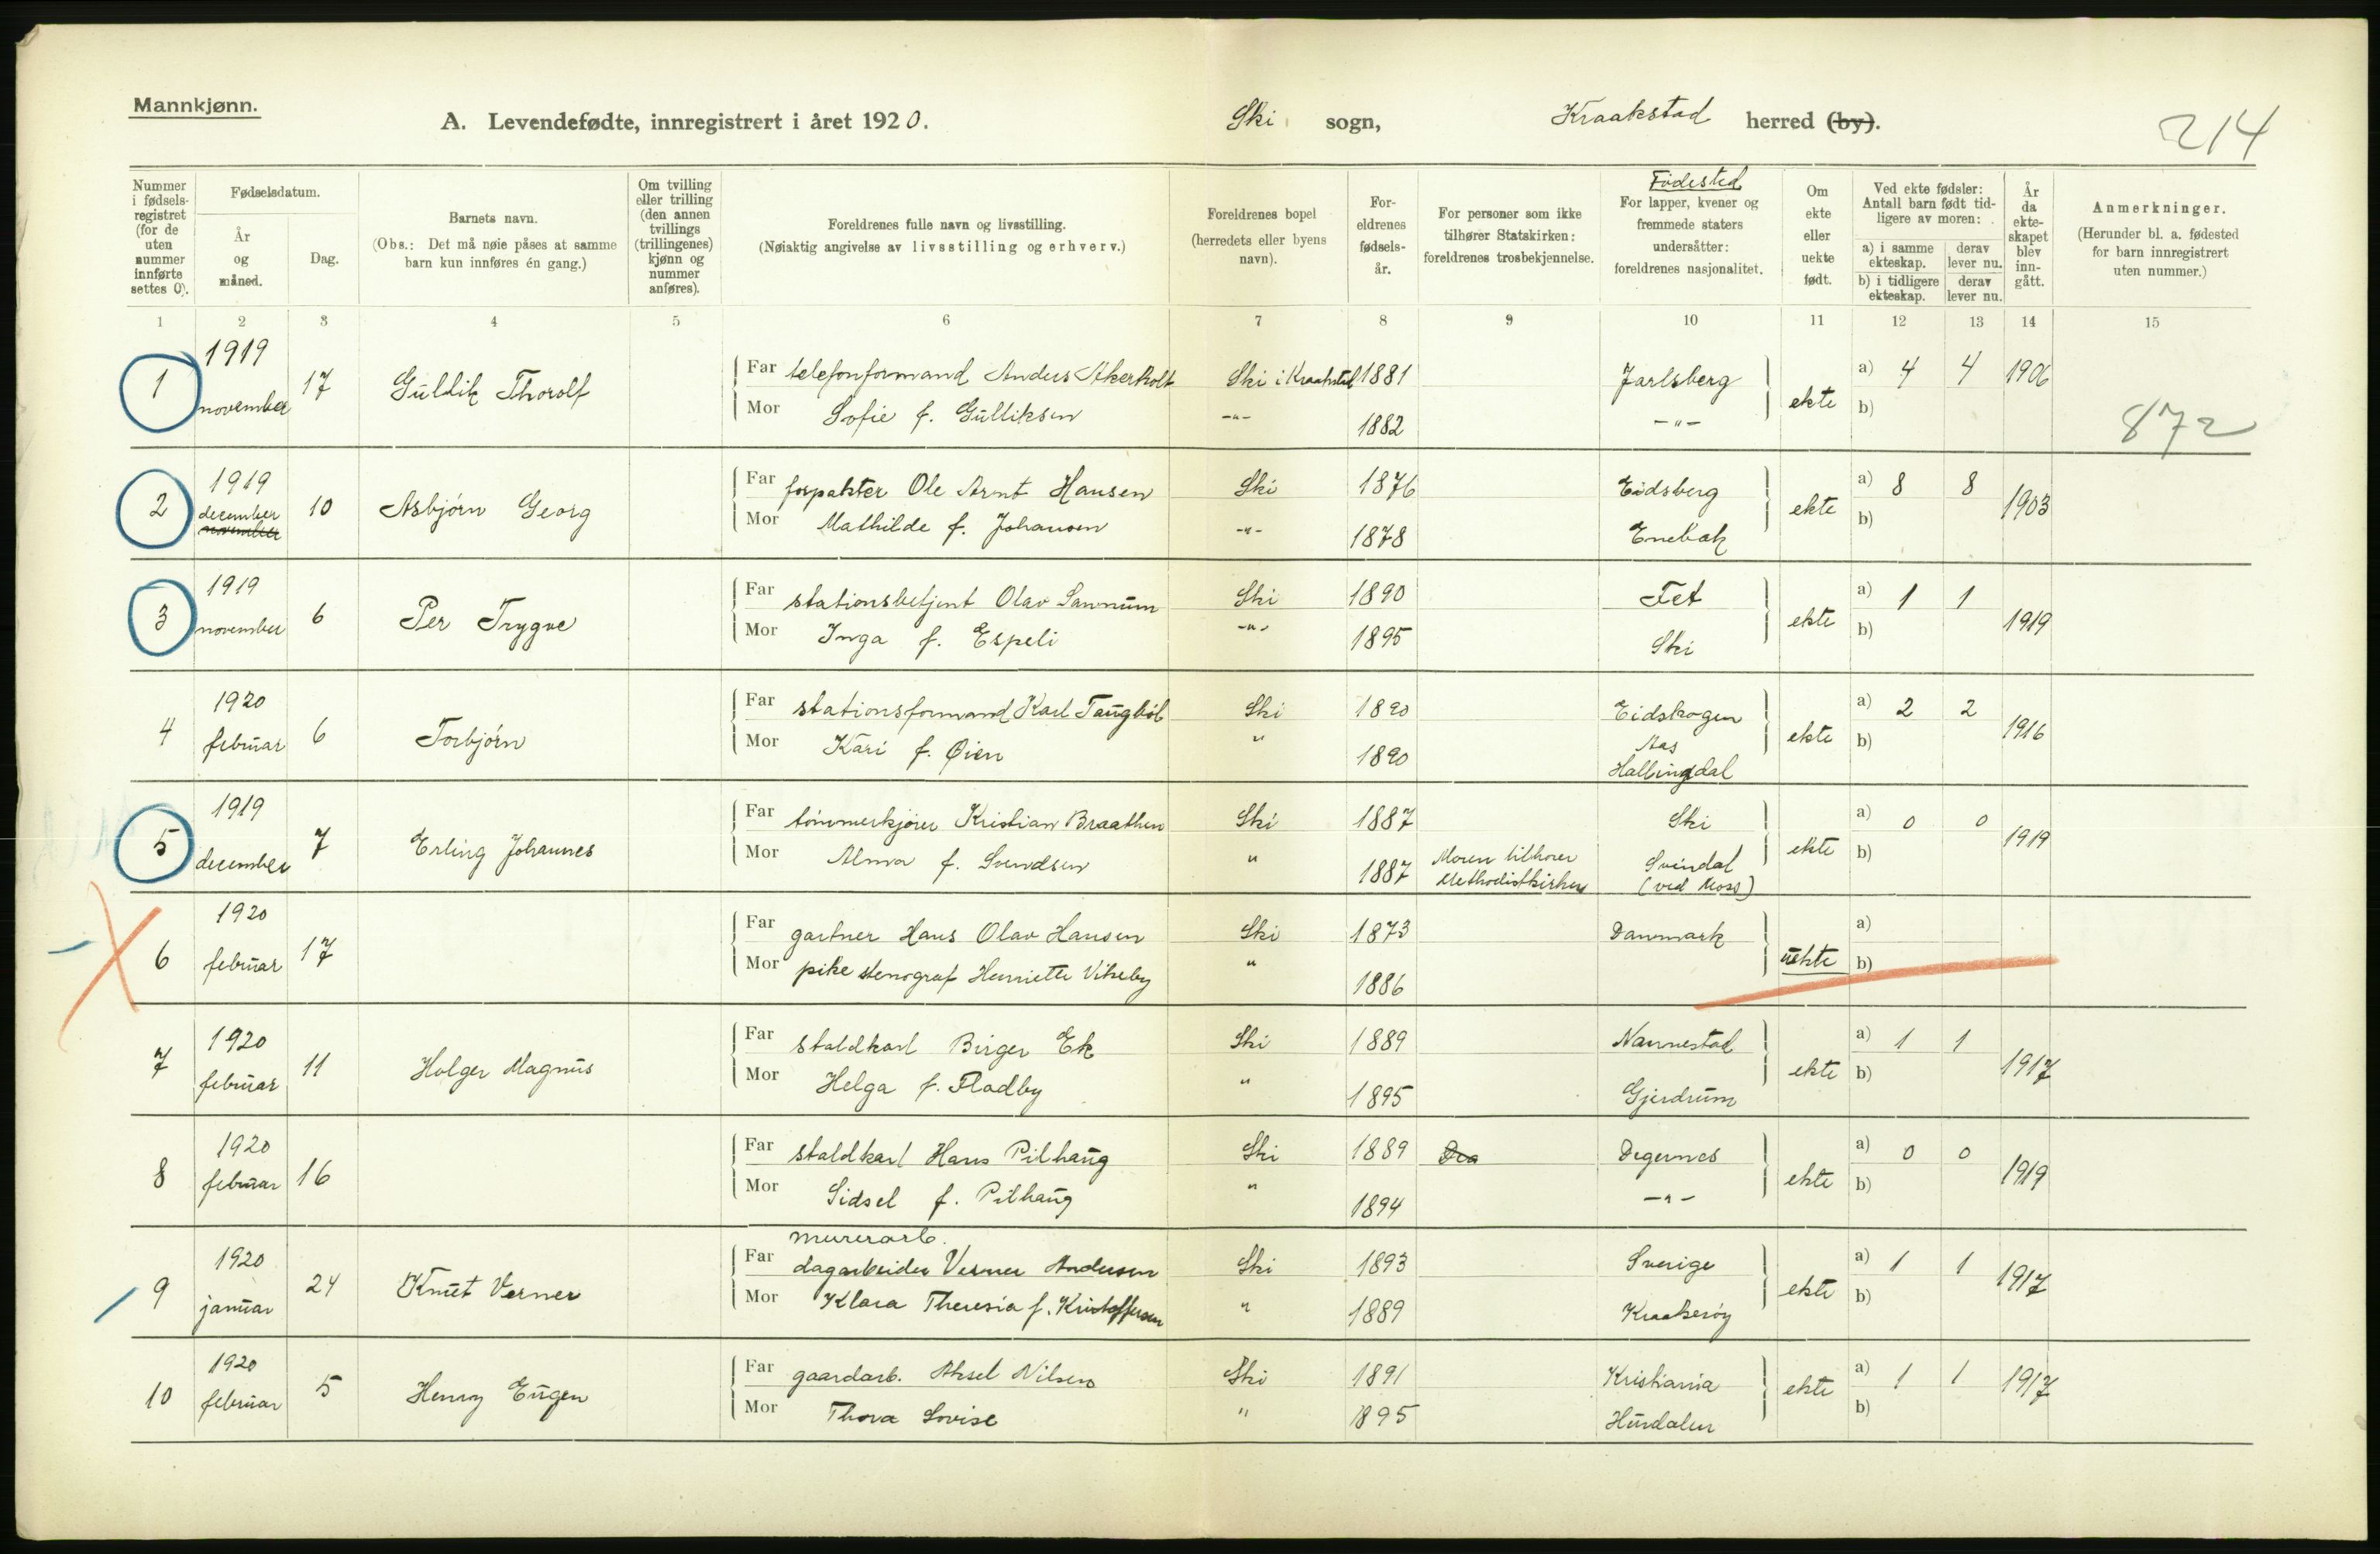 Mannkjønn.
A. Levendefødte, innregistrert i året 1920. Ski sogn, Kraakstad herred (by).
214
Nummer i fødselsregistret (for de uten nummer innførte settes 0).
Fødselsdatum.
År og måned.
Dag.
Barnets navn.
(Obs.: Det må nøie påses at samme barn kun innføres én gang.)
Om tvilling eller trilling (den annen tvillings (trillingenes) kjønn og nummer anføres).
Foreldrenes fulle navn og livsstilling.
(Nøiaktig angivelse av livsstilling og erhverv.)
Foreldrenes bopel (herredets eller byens navn).
Foreldrenes fødselsår.
For personer som ikke tilhører Statskirken: foreldrenes trosbekjennelse.
Fødested
For lapper, kvener og fremmede staters undersåtter: foreldrenes nasjonalitet.
Om ekte eller uekte født.
Ved ekte fødsler: Antall barn født tidligere av moren:
a) i samme ekteskap. derav lever nu.
b) i tidligere ekteskap. derav lever nu.
År da ekteskapet blev inngått.
Anmerkninger.
(Herunder bl. a. fødested for barn innregistrert uten nummer.)
1 2 3 4 5 6 7 8 9 10 11 12 13 14 15
1 1919 november 17 Gullik Thorolf
Far telefonformand Anders Akerholt Ski i Kraakstad 1881 Jarlsberg ekte a) 4 4 1906
Mor Sofie f. Gulliksen -"- 1882 -"- b)
872
2 1919 december november 10 Asbjørn Georg
Far forpakter Ole Arnt Hansen Ski 1876 Eidsberg ekte a) 8 8 1903
Mor Mathilde f. Johansen -"- 1878 Enebak b)
3 1919 november 6 Per Trygve
Far stationsbetjent Olav Sannum Ski 1890 Fet ekte a) 1 1 1919
Mor Inga f. Espeli -"- 1895 Ski b)
4 1920 februar 6 Torbjørn
Far stationsformand Karl Taugbøl Ski 1890 Eidskogen ekte a) 2 2 1916
Mor Kari f. Øien " 1890 Aas Hallingdal b)
5 1919 december 7 Erling Johannes
Far tømmerkjører Kristian Braathen Ski 1887 Ski ekte a) 0 0 1919
Mor Alma f. Svendsen " 1887 Moren tilhører Methodistkirken Svindal (ved Moss) b)
6 1920 februar 17
Far gartner Hans Olav Hansen Ski 1873 Danmark uekte a)
Mor pike stenograf Henriette Vikeby " 1886 b)
7 1920 februar 11 Holger Magnus
Far staldkarl Birger Ek Ski 1889 Nannestad ekte a) 1 1 1917
Mor Helga f. Fladby " 1895 Gjerdrum b)
8 1920 februar 16
Far staldkarl Hans Pilhaug Ski 1889 Degernes ekte a) 0 0 1919
Mor Sidsel f. Pilhaug " 1894 -"- b)
9 1920 januar 24 Knut Verner
murerarb.
Far dagarbeider Verner Andersen Ski 1893 Sverige ekte a) 1 1 1917
Mor Klara Theresia f. Kristoffersen " 1889 Kraakerøy b)
10 1920 februar 5 Henry Eugen
Far gaardarb. Aksel Nilsen Ski 1891 Kristiania ekte a) 1 1 1917
Mor Thora Lovise " 1895 Hurdalen b)